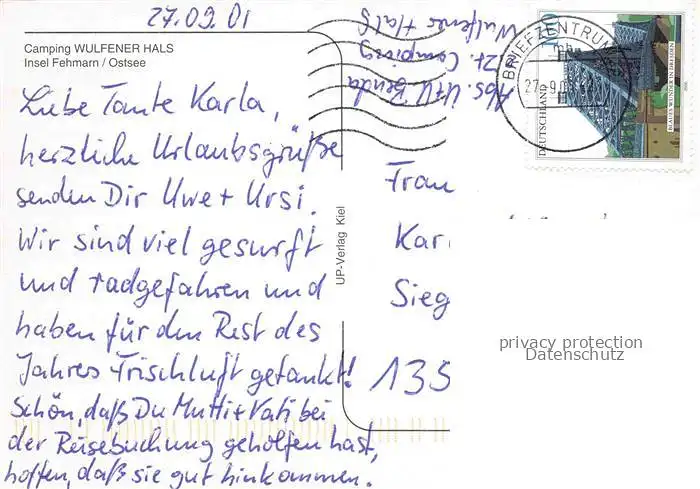 27.09.01
Camping WULFENER HALS
Insel Fehmarn / Ostsee
Liebe Tante Karla,
herzliche Urlaubsgrüße
senden Dir Uwe + Ursi.
Wir sind viel gesurft
und radgefahren und
haben für den Rest des
Jahres Frischluft getankt!
Schön, daß Du Mutti + Vati bei
der Reisebuchung geholfen hast,
hoffen, daß sie gut hinkommen.
UP-Verlag Kiel
Abs. U+U Benda
Zt. Camping
Wulfener Hals
BRIEFZENTRUM
DEUTSCHLAND
BLAUES WUNDER IN DRESDEN
Frau
Kar
Sieg
135
privacy protection
Datenschutz